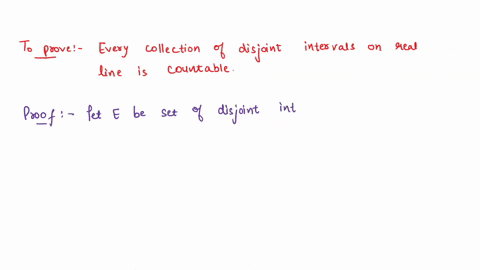 To prove:- Every collection of disjoint intervals on real
line is countable.
Proof:- let E be set of disjoint int